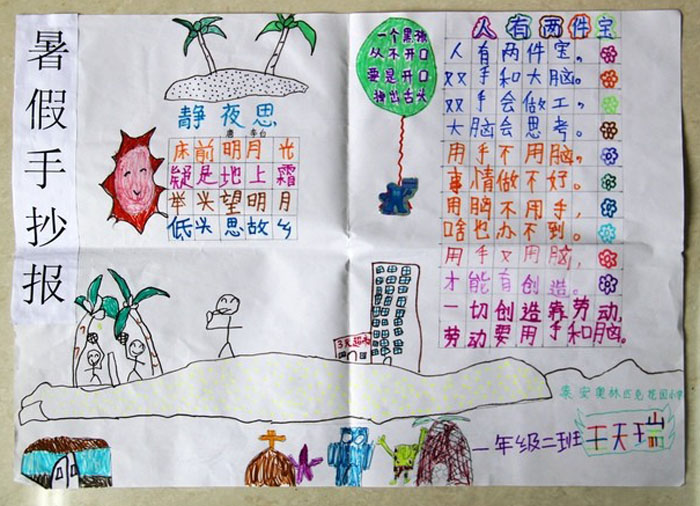 暑假手抄报
静夜思
唐 李白
床前明月光
疑是地上霜
举头望明月
低头思故乡
一个黑孩
从不开口
要是开口
掉出舌头
人有两件宝
人有两件宝，
双手和大脑。
双手会做工，
大脑会思考。
用手不用脑，
事情做不好。
用脑不用手，
啥也办不到。
用手又用脑，
才能有创造。
一切创造靠劳动，
劳动要用手和脑。
奥林匹克花园小学
一年级二班